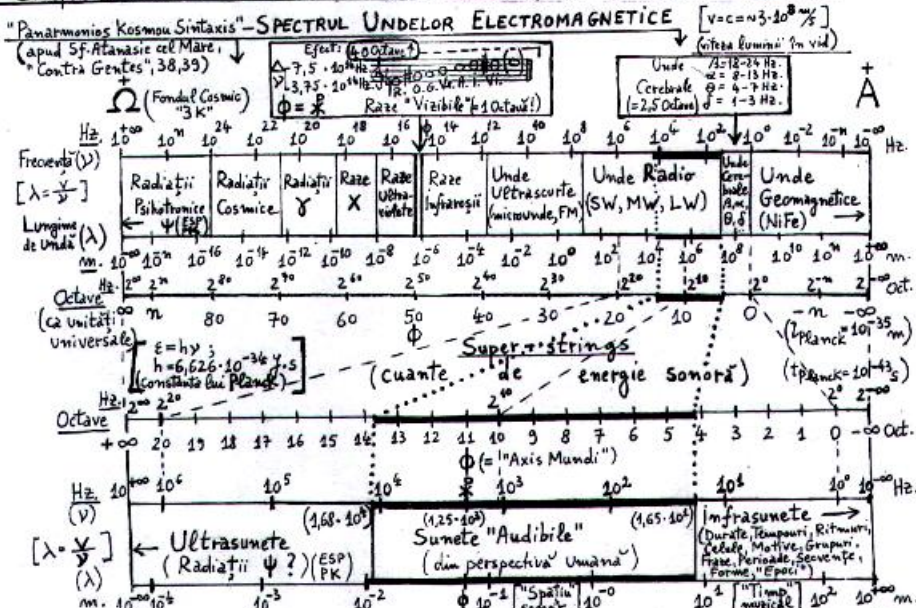 "Panarmonios Kosmou Sintaxis" – SPECTRUL UNDELOR ELECTROMAGNETICE [V=C=~3·10⁸ m/s]
(apud Sf. Atanasie cel Mare, (viteza luminii în vid)
"Contra Gentes", 38,39)
Efect: 40 Octave
7,5 · 10¹⁴ Hz
3,75 · 10¹⁴ Hz
R. O. G. Ve. A. I. Vi.
Raze "Vizibile" (=1 Octavă!)
Unde Cerebrale (=2,5 Octave)
β=18-24 Hz.
α = 8-13 Hz.
θ = 4-7 Hz.
δ = 1-3 Hz.
Ω (Fondul Cosmic "3K") A
Hz. 10⁺∞ 10ⁿ 10²⁴ 10²² 10²⁰ 10¹⁸ 10¹⁶ ϕ 10¹⁴ 10¹² 10¹⁰ 10⁸ 10⁶ 10⁴ 10² 10⁰ 10⁻² 10⁻ⁿ 10⁻∞ Hz.
Frecvența (ν)
[λ = v/ν]
Lungime de Undă (λ)
Radiații Psihotronice Ψ (ESP PK)
Radiații Cosmice
Radiații γ
Raze X
Raze Ultraviolete
Raze Infraroșii
Unde Ultrascurte (microunde, FM)
Unde Radio (SW, MW, LW)
Unde Cerebrale β,α, θ,δ
Unde Geomagnetice (NiFe)
m. 10⁻∞ 10⁻ⁿ 10⁻¹⁶ 10⁻¹⁴ 10⁻¹² 10⁻¹⁰ 10⁻⁸ 10⁻⁶ 10⁻⁴ 10⁻² 10⁰ 10² 10⁴ 10⁶ 10⁸ 10¹⁰ 10ⁿ 10⁺∞ m.
Hz. 2⁺∞ 2ⁿ 2⁸⁰ 2⁷⁰ 2⁶⁰ 2⁵⁰ 2⁴⁰ 2³⁰ 2²⁰ 2¹⁰ 2⁰ 2⁻ⁿ 2⁻∞ Hz.
Octave +∞ n 80 70 60 50 40 30 20 10 0 -n -∞ Oct.
(ca unități universale) ϕ
[ε=hν; h=6,626·10⁻³⁴ J·s (constanta lui Planck)]
Super-strings (l Planck = 10⁻³⁵ m)
(cuante de energie sonoră) (t Planck = 10⁻⁴³ s)
Hz. 2⁺∞ 2²⁰ 2¹⁰ 2⁰ 2⁻∞ Hz.
Octave +∞ 20 19 18 17 16 15 14 13 12 11 10 9 8 7 6 5 4 3 2 1 0 -∞ Oct.
ϕ (= "Axis Mundi")
Hz. (ν) 10⁺∞ 10⁶ 10⁵ 10⁴ 10³ 10² 10¹ 10⁰ 10⁻∞ Hz.
(1,68·10⁴) (1,25·10³) (1,65·10¹)
[λ = v/ν]
(λ)
Ultrasunete (Radiații Ψ ?) (ESP PK)
Sunete "Audibile" (din perspectivă umană)
Infrasunete
(Durate, Tempouri, Ritmuri,
Celule, Motive, Grupuri,
Fraze, Perioade, Secvențe,
Forme, "Epoci")
m. 10⁻∞ 10⁻⁴ 10⁻³ 10⁻² ϕ 10⁻¹ "Spațiu" 10⁻⁰ "Timp" 10¹ 10² 10⁺∞ m.